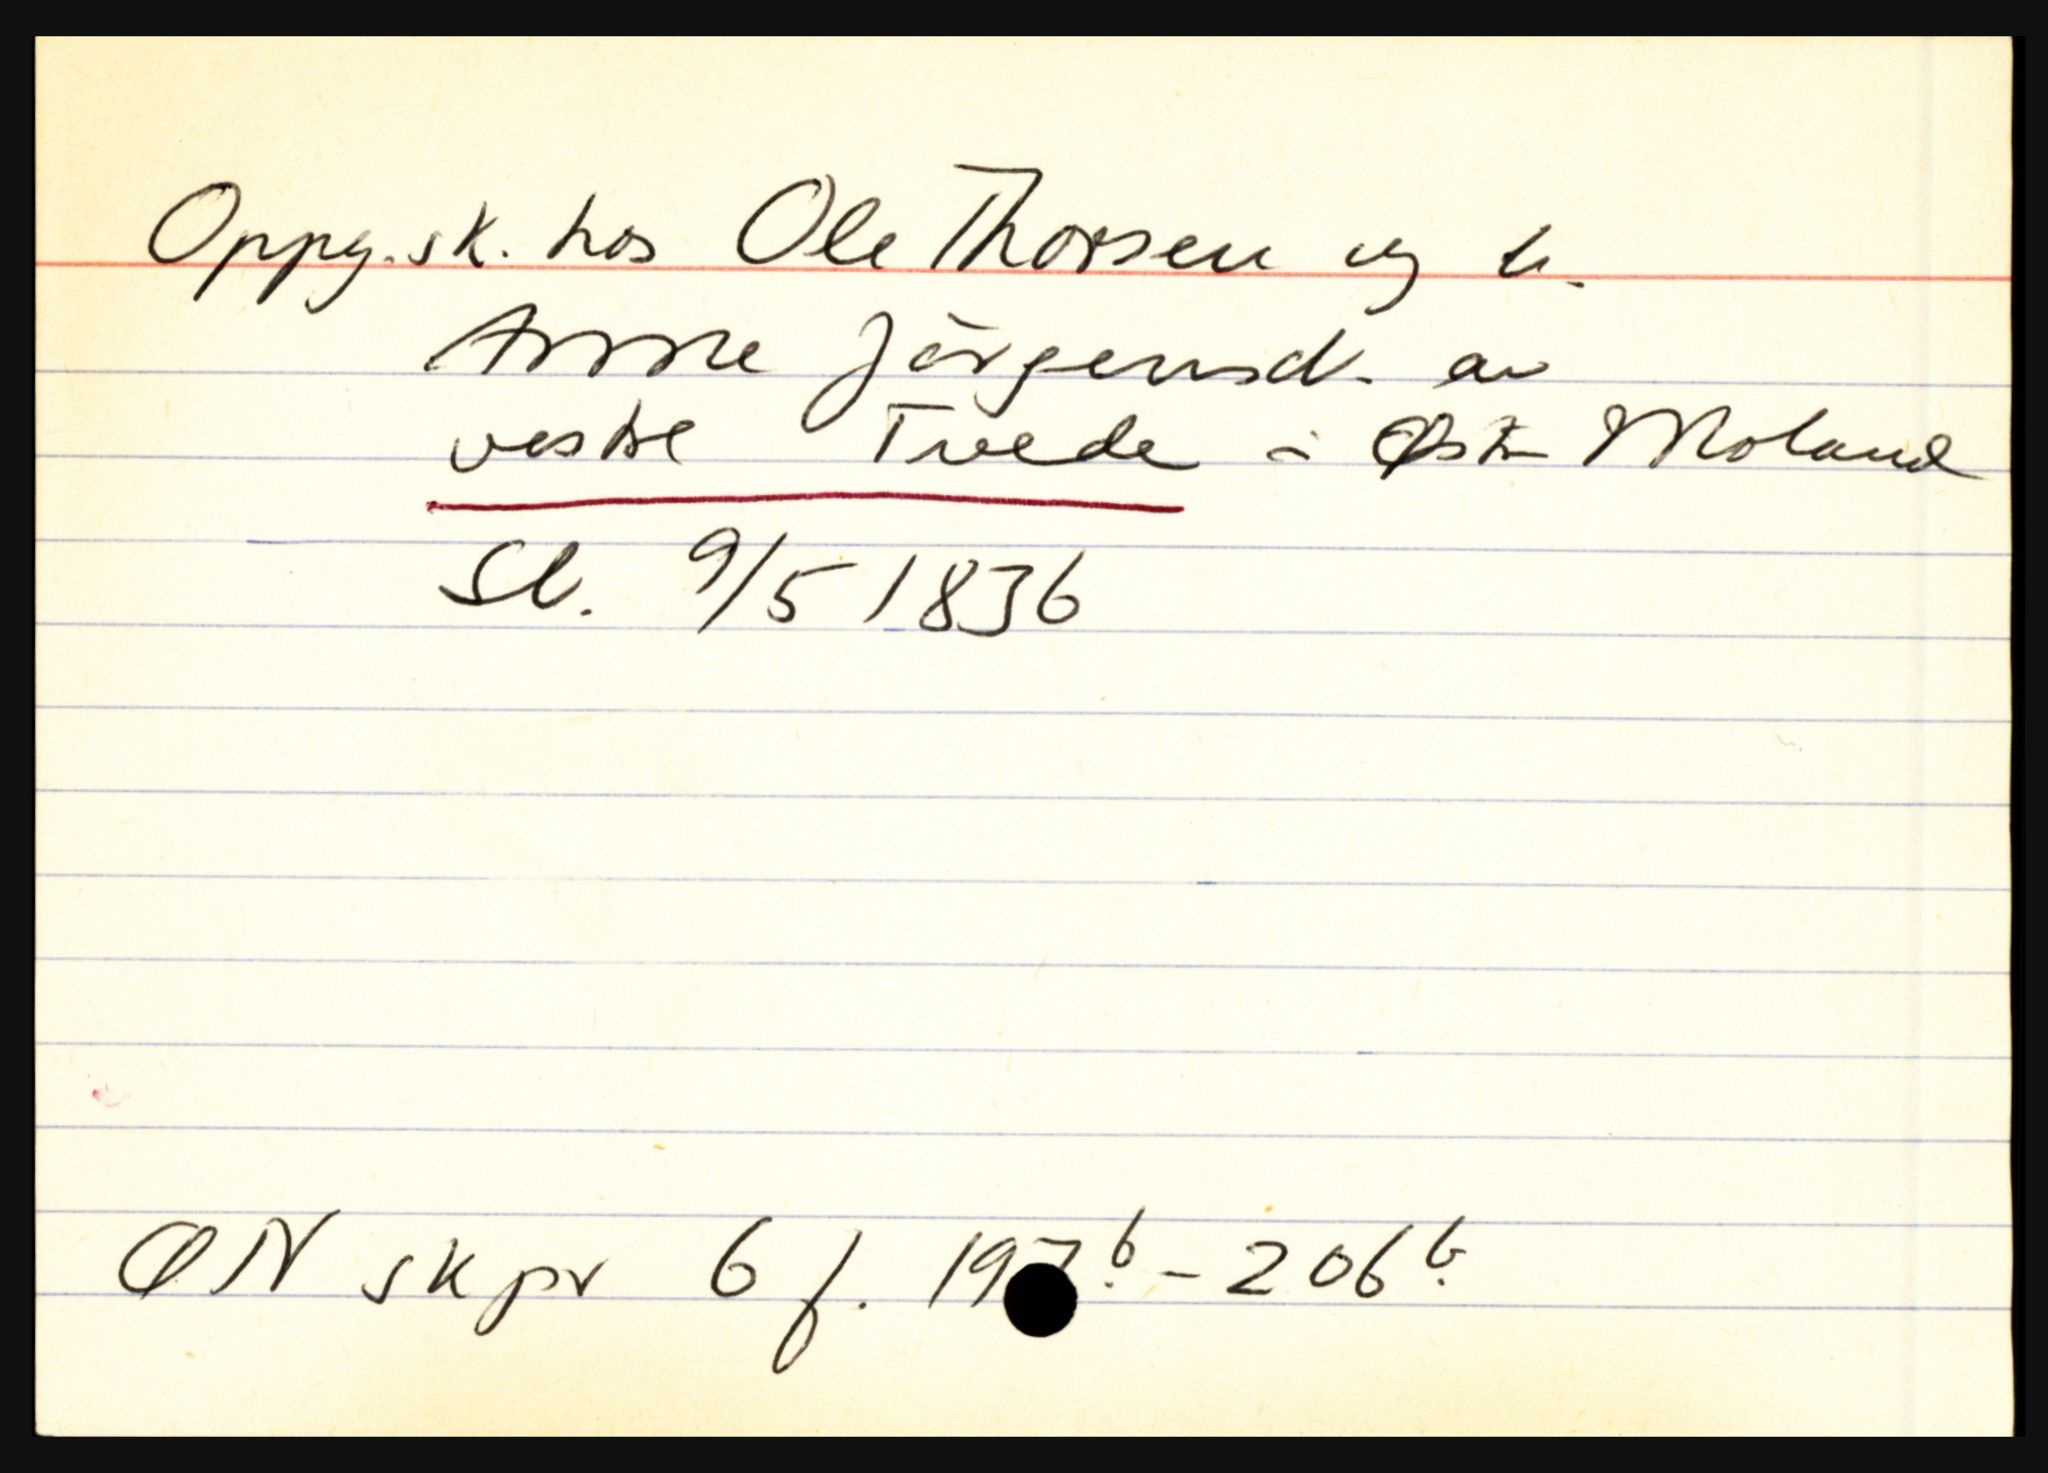 Oppg.sk. hos Ole Thorsen og h.
Anne Jörgensd. av
vestre Tvede i Østre Moland
Sl. 9/5 1836
ØN skpr 6 f. 197b - 206b.